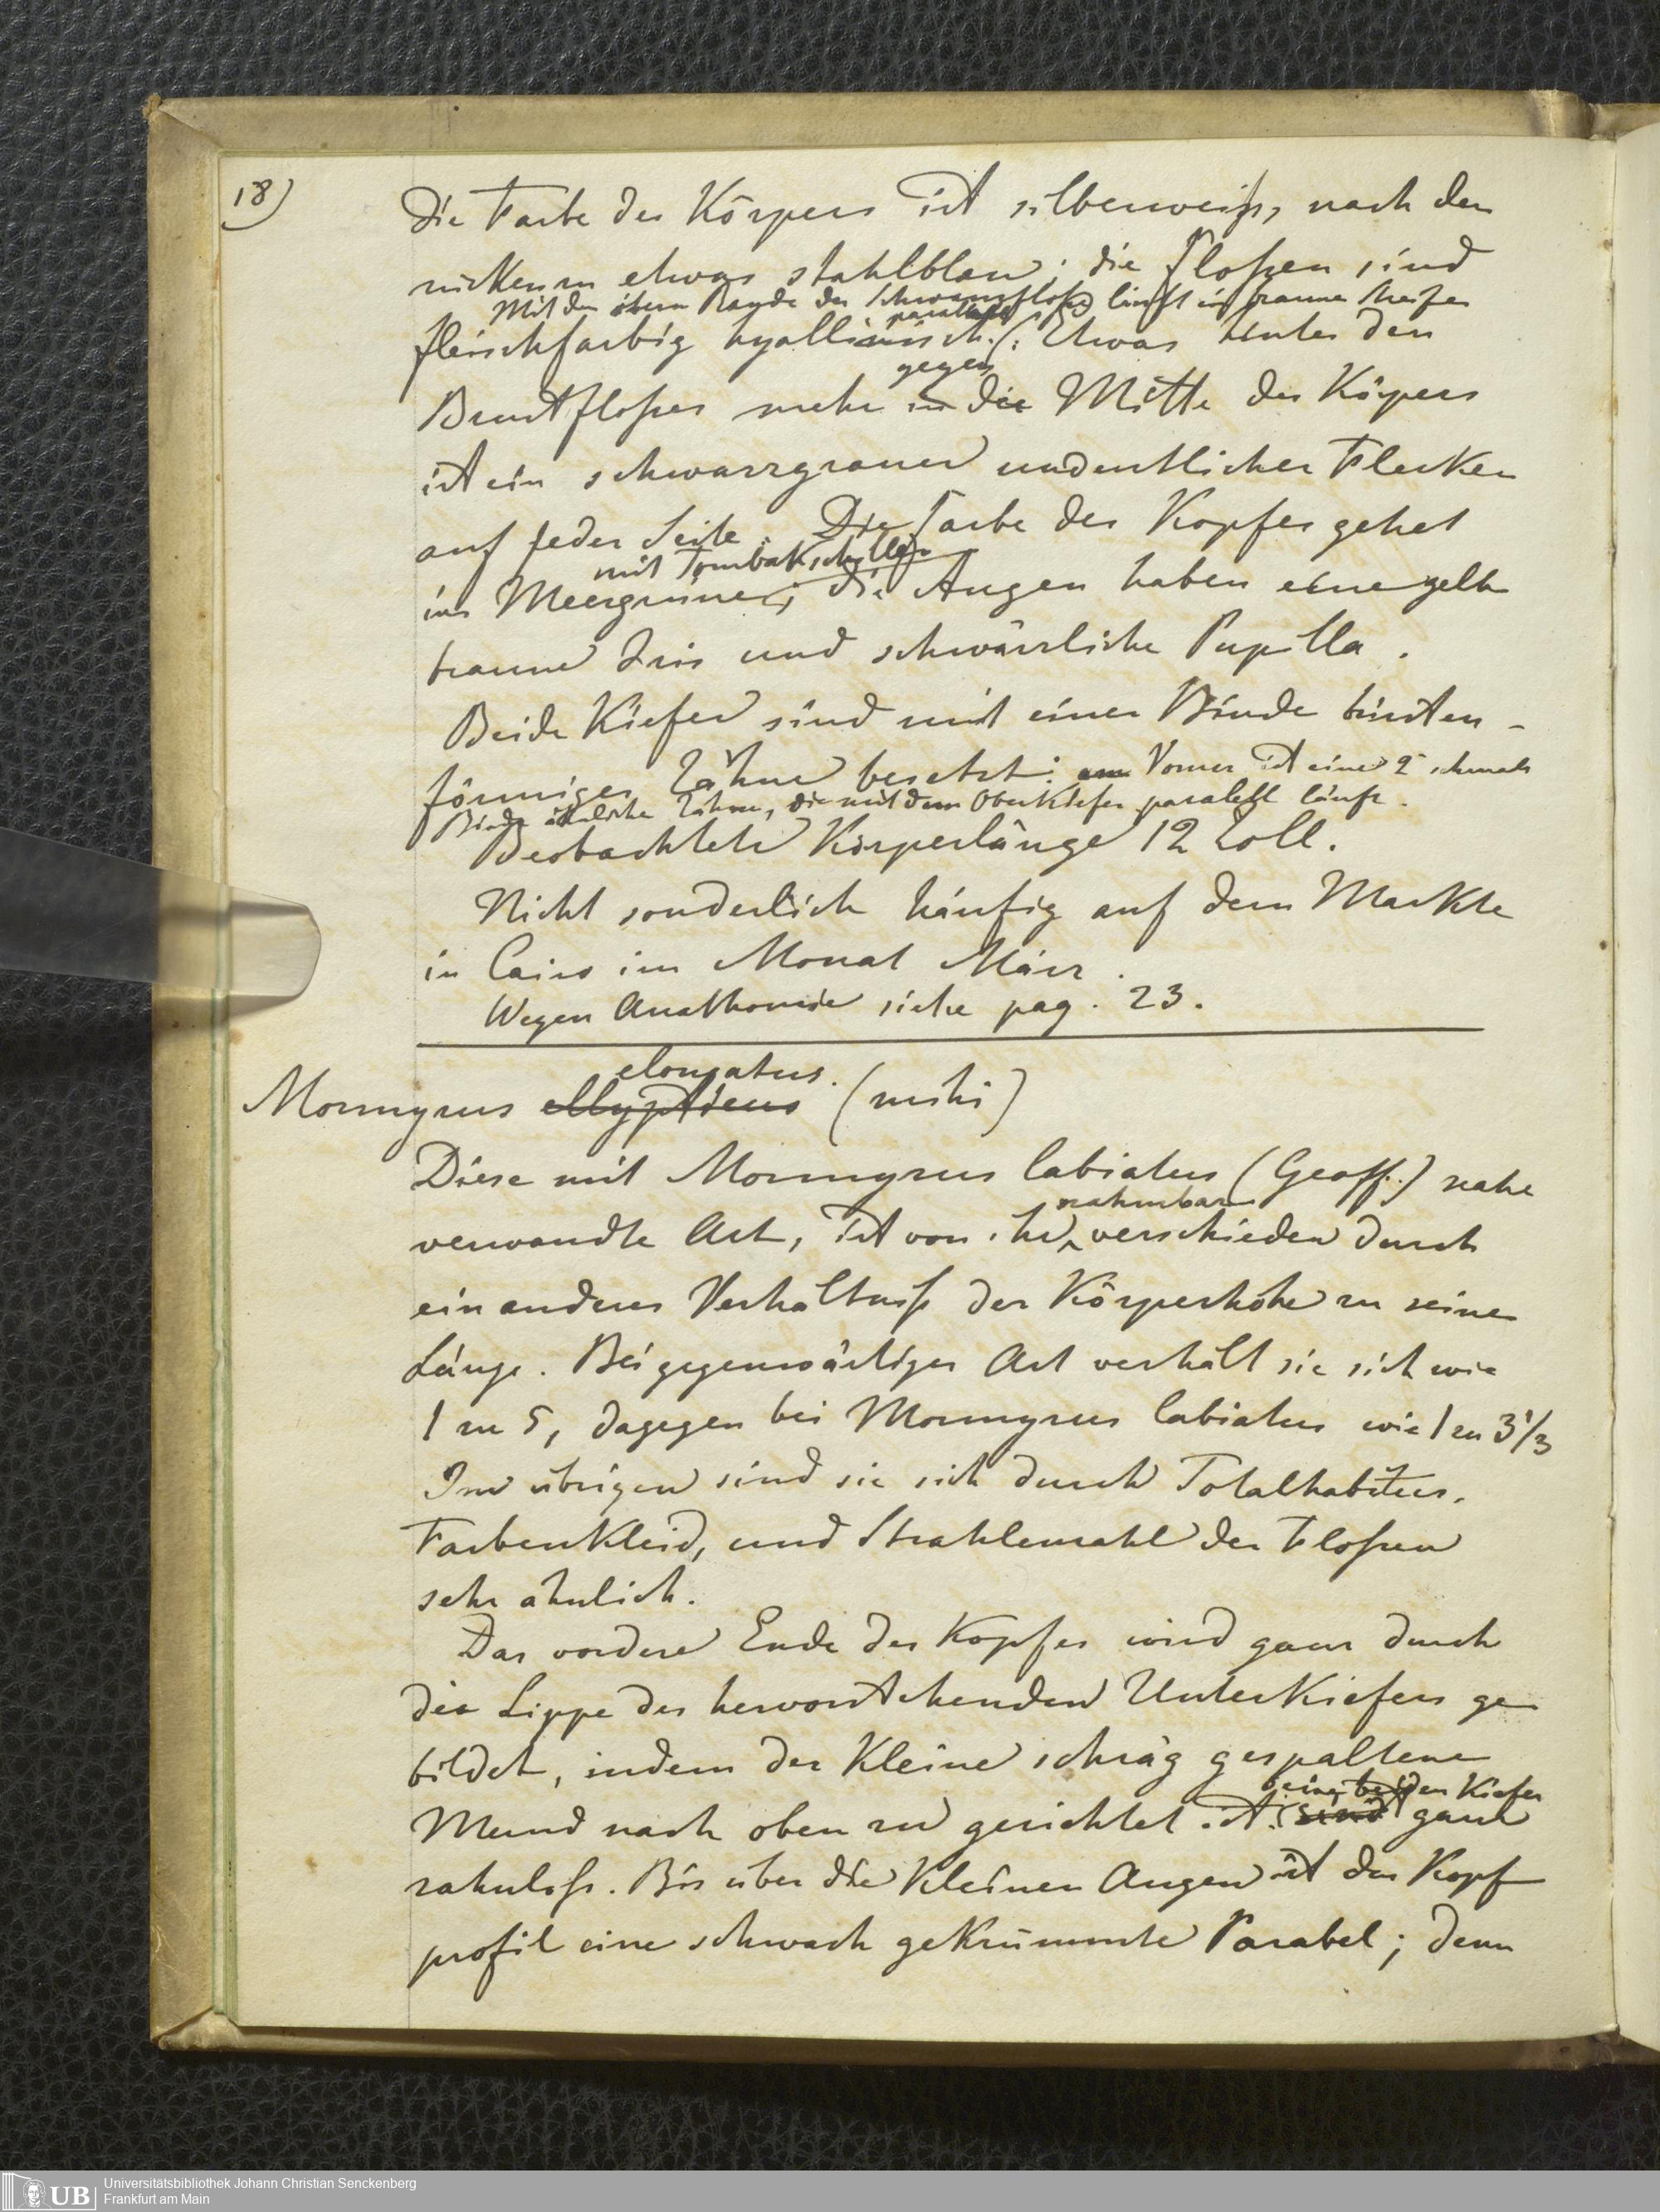 18)
Die Farbe des Körpers ist silberweiß, nach dem
rücken zu etwas stahlblau; die Floßen sind
Mit dem obern Rande der Schwanzfloße läuft ein braune Streifen
parallel
fleischfarbig hyallinisch. Etwas hinter den
gegen
Brustfloßen mehr in die Mitte des Körpers
ist ein schwarzgrauer undeutlicher Flecken
auf jeder Seite. Die Farbe des Kopfes gehet
mit Tombakschiller
ins Meergrüne, die Augen haben eine gelb
braune Iris und schwärzliche Pupilla.
Beide Kiefer sind mit einer Binde bürsten-
förmiger Zähne besetzt: am Vomer ist eine 2te schmale
Binde ähnliche Zähne, die mit dem Oberkiefer paralell läuft.
Beobachtete Körperlänge 12 Zoll.
Nicht sonderlich häufig auf dem Markte
in Cairo im Monat März.
Wegen Anathomie siehe pag. 23.
elongatus.
Mormyrus ellypticus (mihi)
Diese mit Mormyrus labiatus (Geoff.) nahe
nahmbar
verwandte Art, ist von ihr verschieden durch
ein anderes Verhältniß der Körperhöhe zu seiner
Länge. Bei gegenwärtiger Art verhält sie sich wie
1 zu 5, dagegen bei Mormyrus labiatus wie 1 zu 3 1/3
Im übrigen sind sie sich durch Totalhabitus,
Farbenkleid, und Strahlenzahl der Floßen
sehr ähnlich.
Das vordere Ende des Kopfes wird ganz durch
die Lippe des hervorstehenden Unterkiefers ge
bildet, indem der kleine schräg gespaltene
beiden Kiefer
Mund nach oben zu gerichtet ist. sind ganz
zahnloß. Bis über die kleinen Augen ist das Kopf
profil eine schwach gekrümmte Parabel; denn
UB
Universitätsbibliothek Johann Christian Senckenberg
Frankfurt am Main